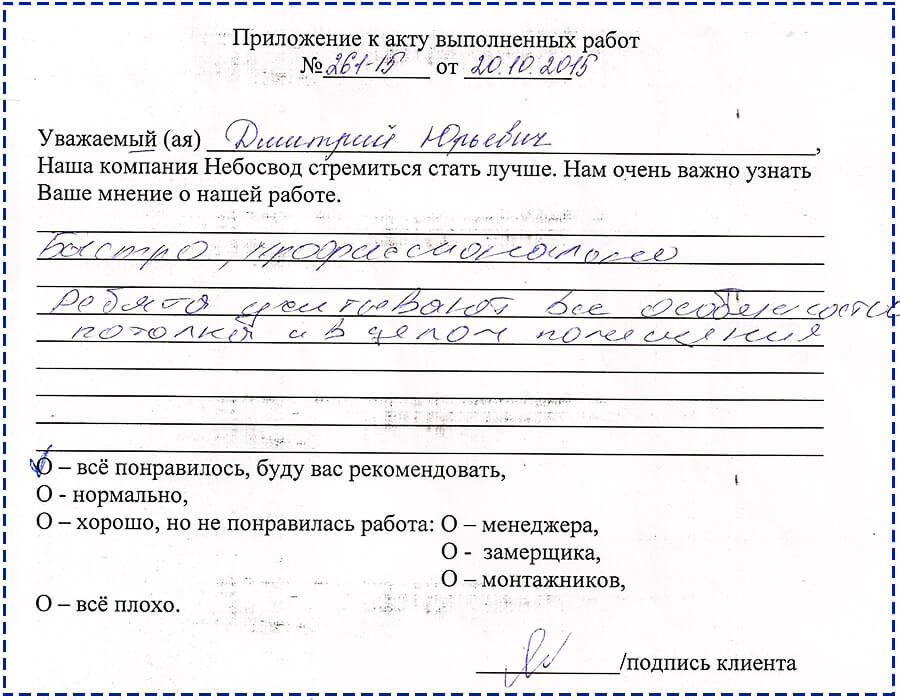 Приложение к акту выполненных работ
№ 261-15 от 20.10.2015
Уважаемый (ая) Дмитрий Юрьевич,
Наша компания Небосвод стремиться стать лучше. Нам очень важно узнать
Ваше мнение о нашей работе.
Быстро, профессионально
Ребята учитывают все особенности
потолка и в целом помещения
О – всё понравилось, буду вас рекомендовать,
О - нормально,
О – хорошо, но не понравилась работа: О – менеджера,
О - замерщика,
О – монтажников,
О – всё плохо.
/подпись клиента